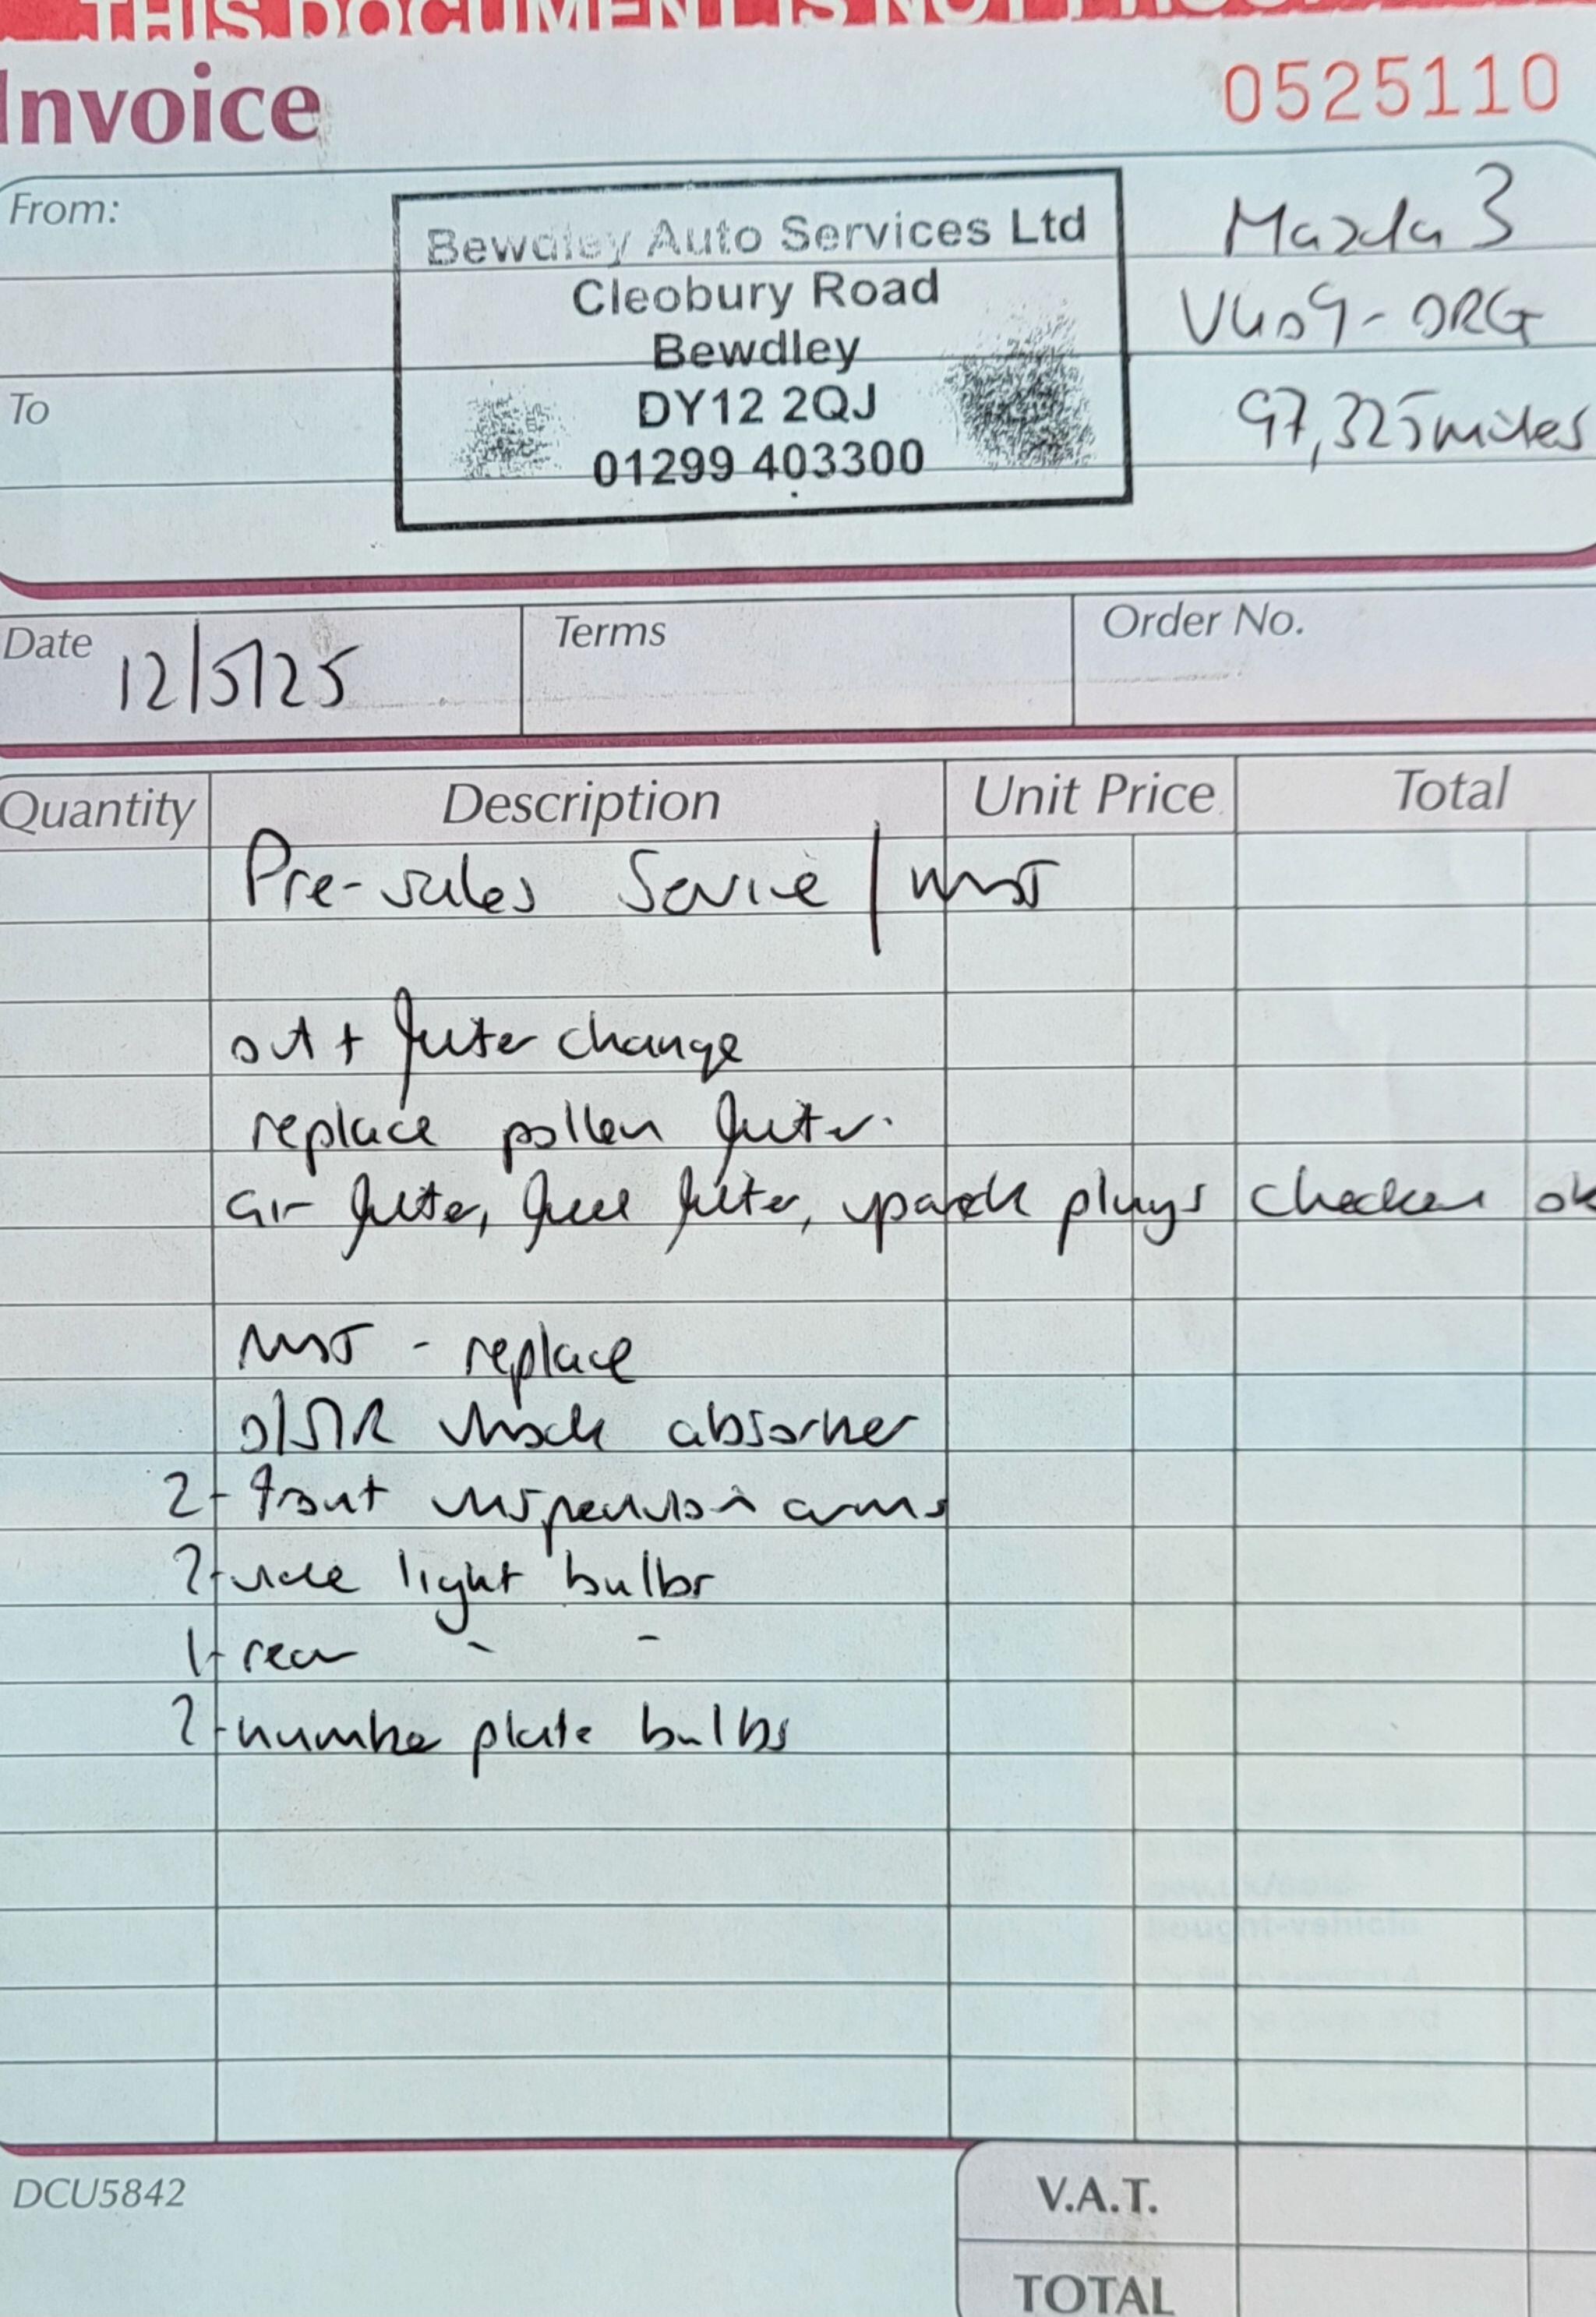 THIS DOCUMENT IS NOT PROO
Invoice
0525110
From:
Bewdley Auto Services Ltd
Cleobury Road
Bewdley
DY12 2QJ
01299 403300
Mazda 3
VU09-ORG
97,325 miles
To
Date 12/5/25
Terms
Order No.
Quantity Description Unit Price Total
Pre-sales Service / MOT
oil + filter change
replace pollen filter.
air filter, fuel filter, spark plugs checked ok
MOT - replace
O/S/R shock absorber
2 - front suspension arms
2 - side light bulbs
1 - rear " "
2 - number plate bulbs
DCU5842
V.A.T.
TOTAL